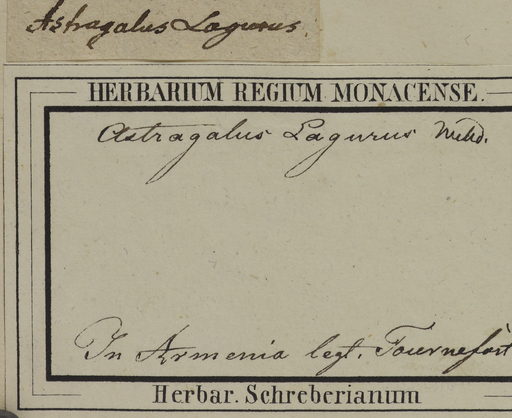 Astragalus Lagurus.
HERBARIUM REGIUM MONACENSE.
Astragalus Lagurus Willd.
In Armenia legt. Tournefort
Herbar. Schreberianum